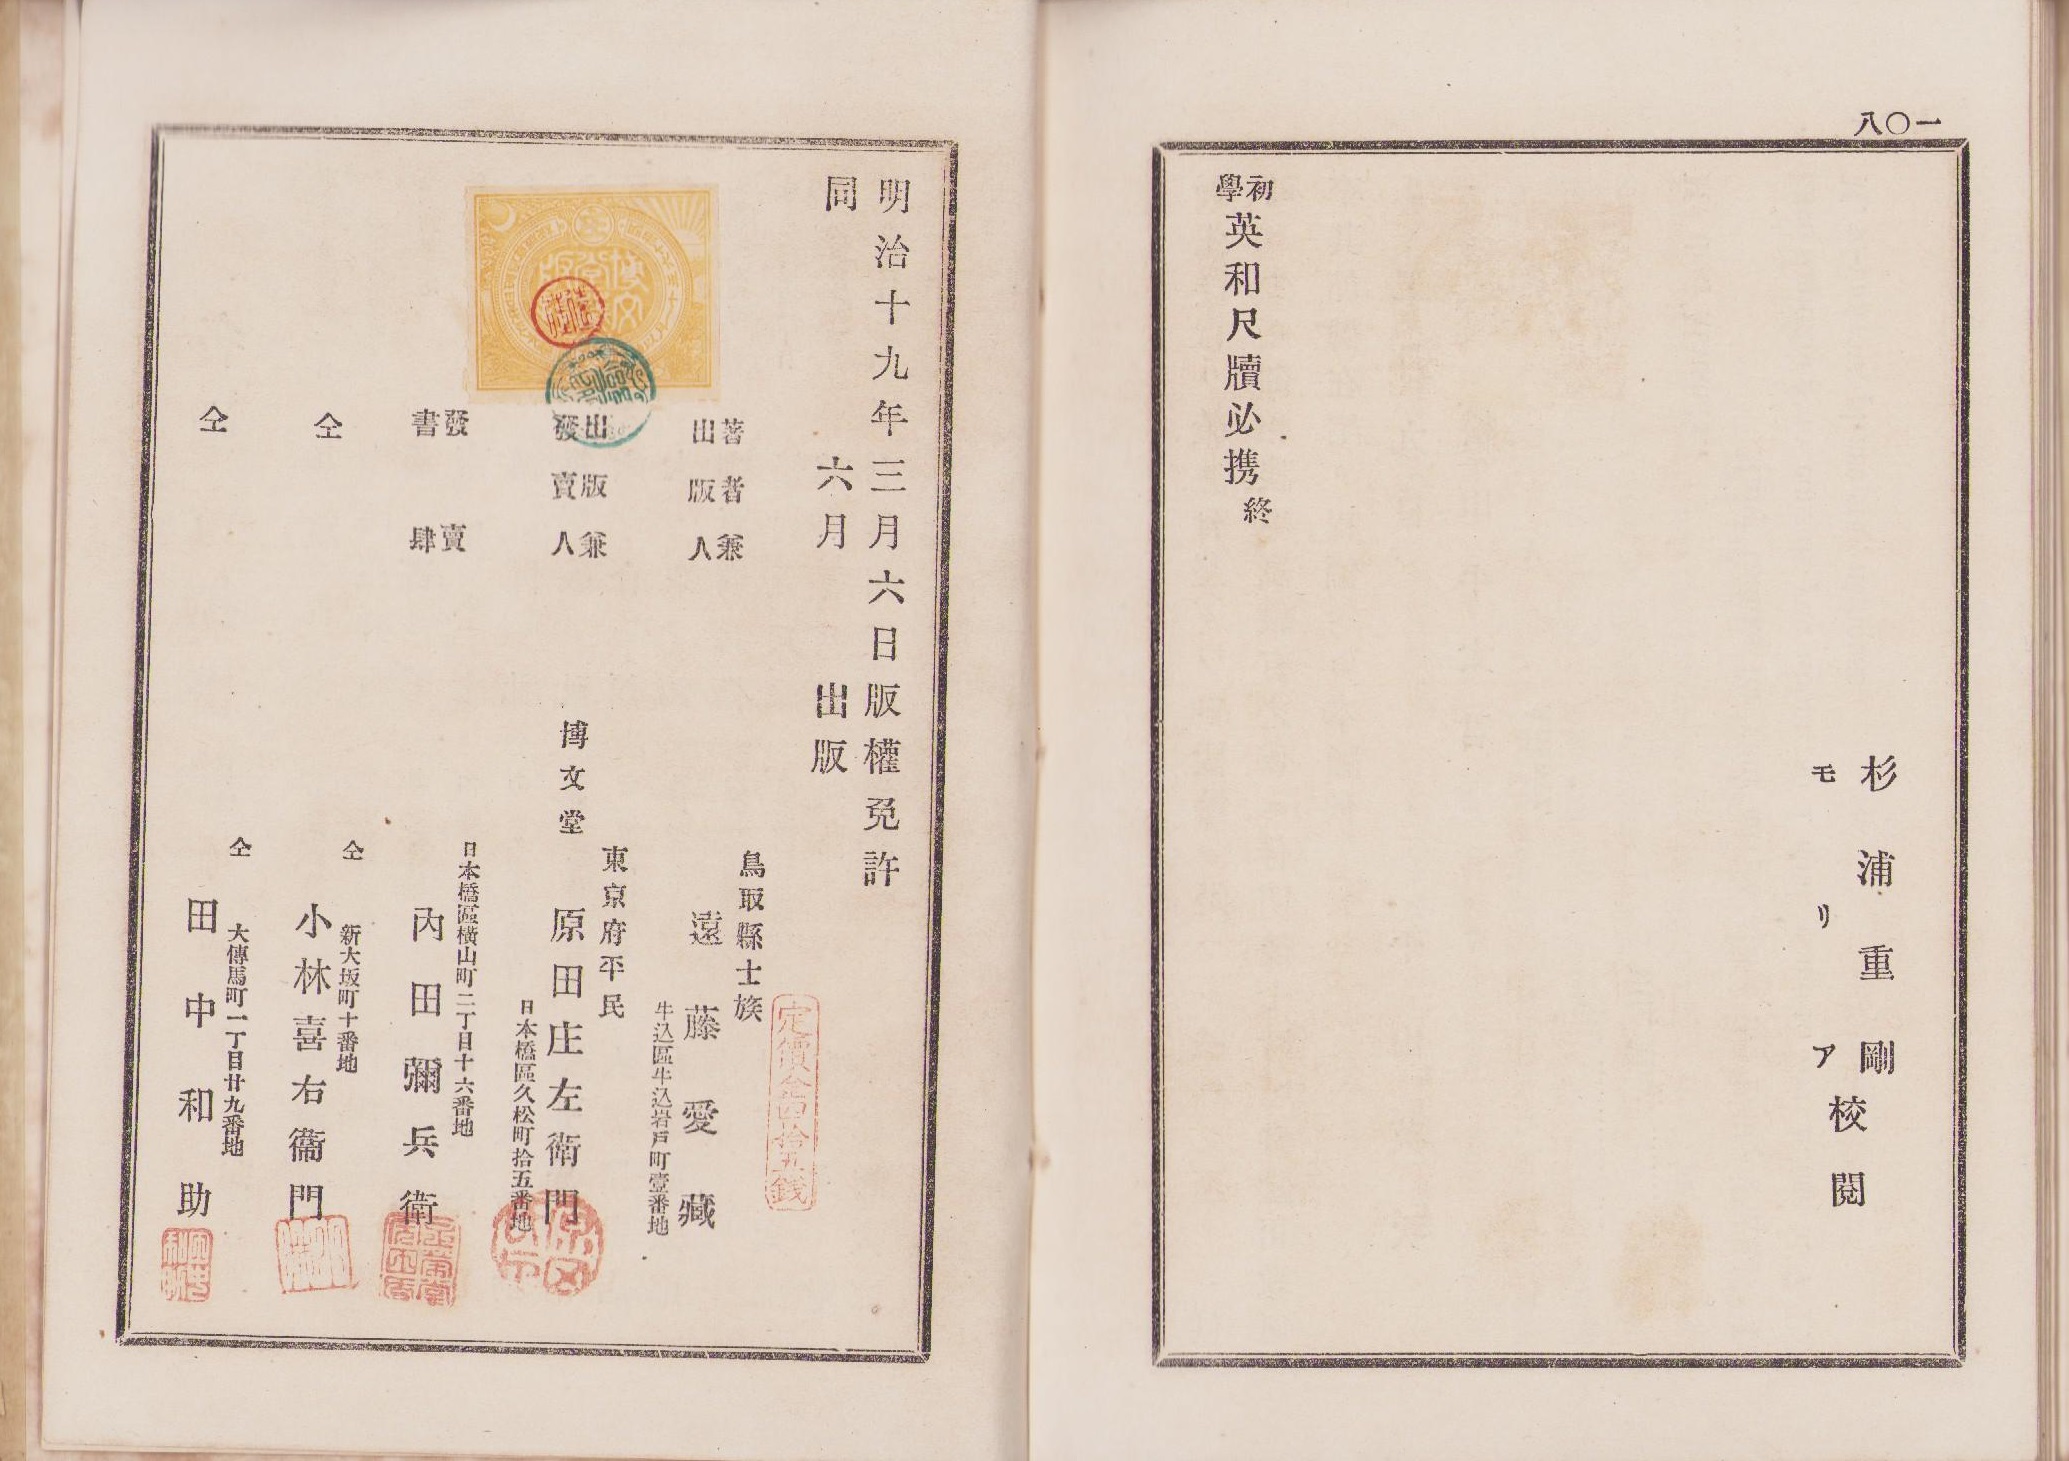 一〇八
杉浦重剛
モリア
校閲
初學英和尺牘必携終
明治十九年三月六日版權免許
同 六月 出版
定價金四拾五銭
著者兼出版人
鳥取縣士族
遠藤愛藏
牛込區牛込岩戸町壹番地
出版兼發賣人
東京府平民
博文堂 原田庄左衛門
日本橋區久松町拾五番地
發賣書肆
日本橋區横山町二丁目十六番地
内田彌兵衛
仝
仝 新大坂町十番地
小林喜右衞門
仝
仝 大傳馬町一丁目廿九番地
田中和助